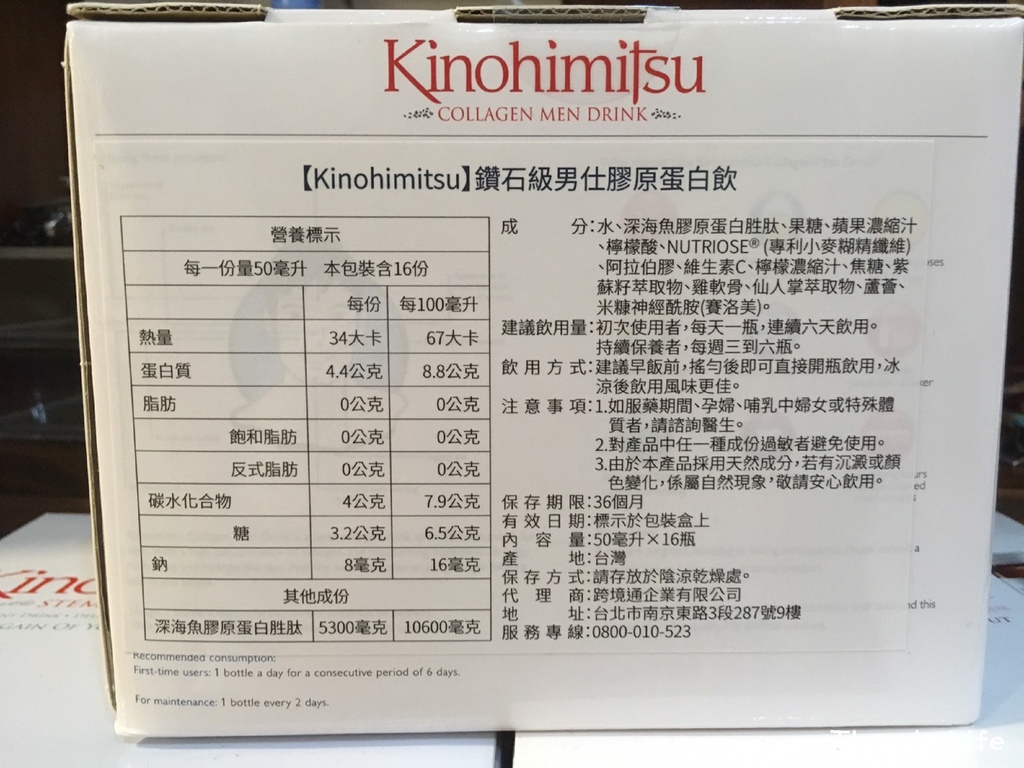 Kinohimitsu
COLLAGEN MEN DRINK
【Kinohimitsu】鑽石級男仕膠原蛋白飲
營養標示
每一份量50毫升 本包裝含16份
每份 每100毫升
熱量 34大卡 67大卡
蛋白質 4.4公克 8.8公克
脂肪 0公克 0公克
飽和脂肪 0公克 0公克
反式脂肪 0公克 0公克
碳水化合物 4公克 7.9公克
糖 3.2公克 6.5公克
鈉 8毫克 16毫克
其他成份
深海魚膠原蛋白胜肽 5300毫克 10600毫克
成分:水、深海魚膠原蛋白胜肽、果糖、蘋果濃縮汁
、檸檬酸、NUTRIOSE® (專利小麥糊精纖維)
、阿拉伯膠、維生素C、檸檬濃縮汁、焦糖、紫
蘇籽萃取物、雞軟骨、仙人掌萃取物、蘆薈、
米糠神經酰胺(賽洛美)。
建議飲用量:初次使用者,每天一瓶,連續六天飲用。
持續保養者,每週三到六瓶。
飲用方式:建議早飯前,搖勻後即可直接開瓶飲用,冰
涼後飲用風味更佳。
注意事項:1.如服藥期間、孕婦、哺乳中婦女或特殊體
質者,請諮詢醫生。
2.對產品中任一種成份過敏者避免使用。
3.由於本產品採用天然成分,若有沉澱或顏
色變化,係屬自然現象,敬請安心飲用。
保存期限:36個月
有效日期:標示於包裝盒上
內容量:50毫升×16瓶
產地:台灣
保存方式:請存放於陰涼乾燥處。
代理商:跨境通企業有限公司
地址:台北市南京東路3段287號9樓
服務專線:0800-010-523
Recommended consumption:
First-time users: 1 bottle a day for a consecutive period of 6 days.
For maintenance: 1 bottle every 2 days.